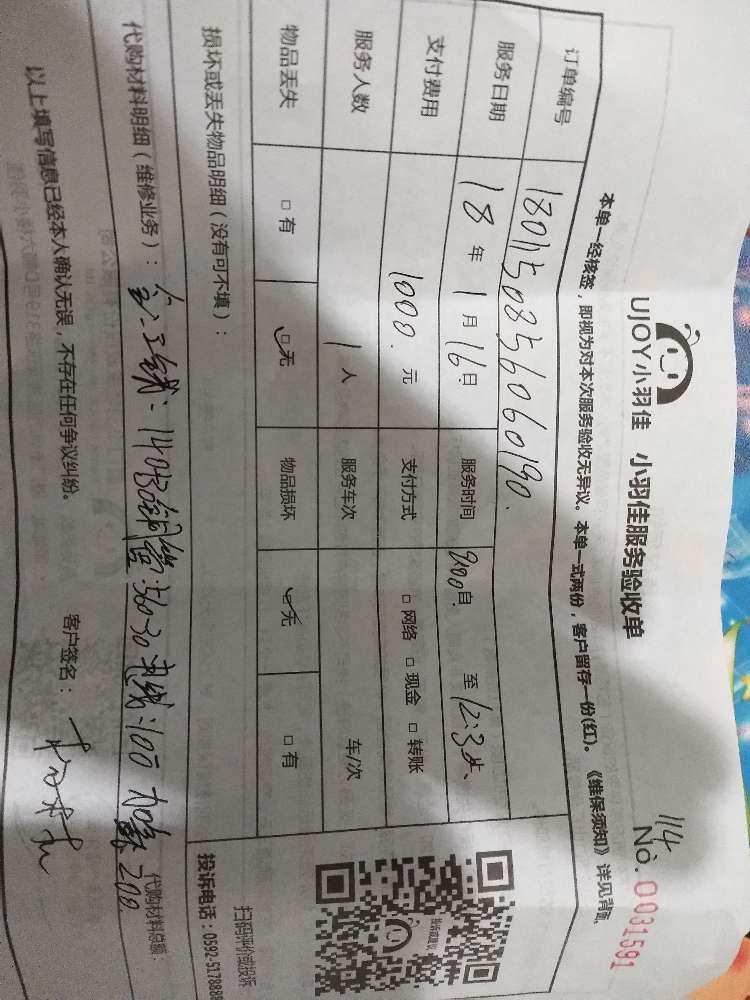 UJOY小羽佳 小羽佳服务验收单
114
No: 0031591
本单一经核签，即视为对本次服务验收无异议。本单一式两份，客户留存一份(红)。《维保须知》详见背面。
订单编号 1801150856060190.
服务日期 18 年 1 月 16 日 服务时间 自 至
支付费用 1000. 元 支付方式 □ 网络 □ 现金 □ 转账
服务人数 1 人 服务车次 车/次
物品丢失 □ 有 □ 无 物品损坏 □ 无 □ 有
损坏或丢失物品明细（没有可不填）：
代购材料明细（维修业务）： 100 200. 代购材料总额：
以上填写信息已经本人确认无误，不存在任何争议纠纷。 客户签名：
扫码评价或投诉
投诉电话：0592-517888